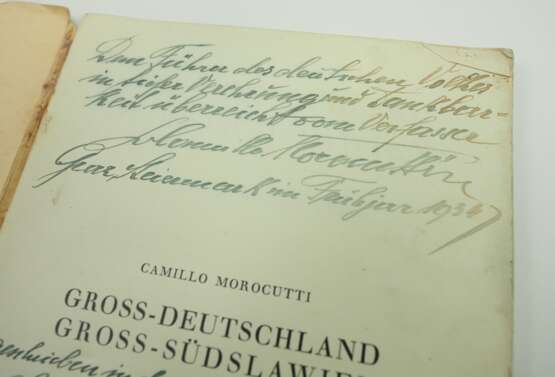 Dem Führer des deutschen Volkes
in tiefer Verehrung und Dankbar-
keit überreicht vom Verfasser
Camillo Morocutti
Graz, Steiermark im Frühjar 1934
CAMILLO MOROCUTTI
GROSS-DEUTSCHLAND
GROSS-SÜDSLAWIEN